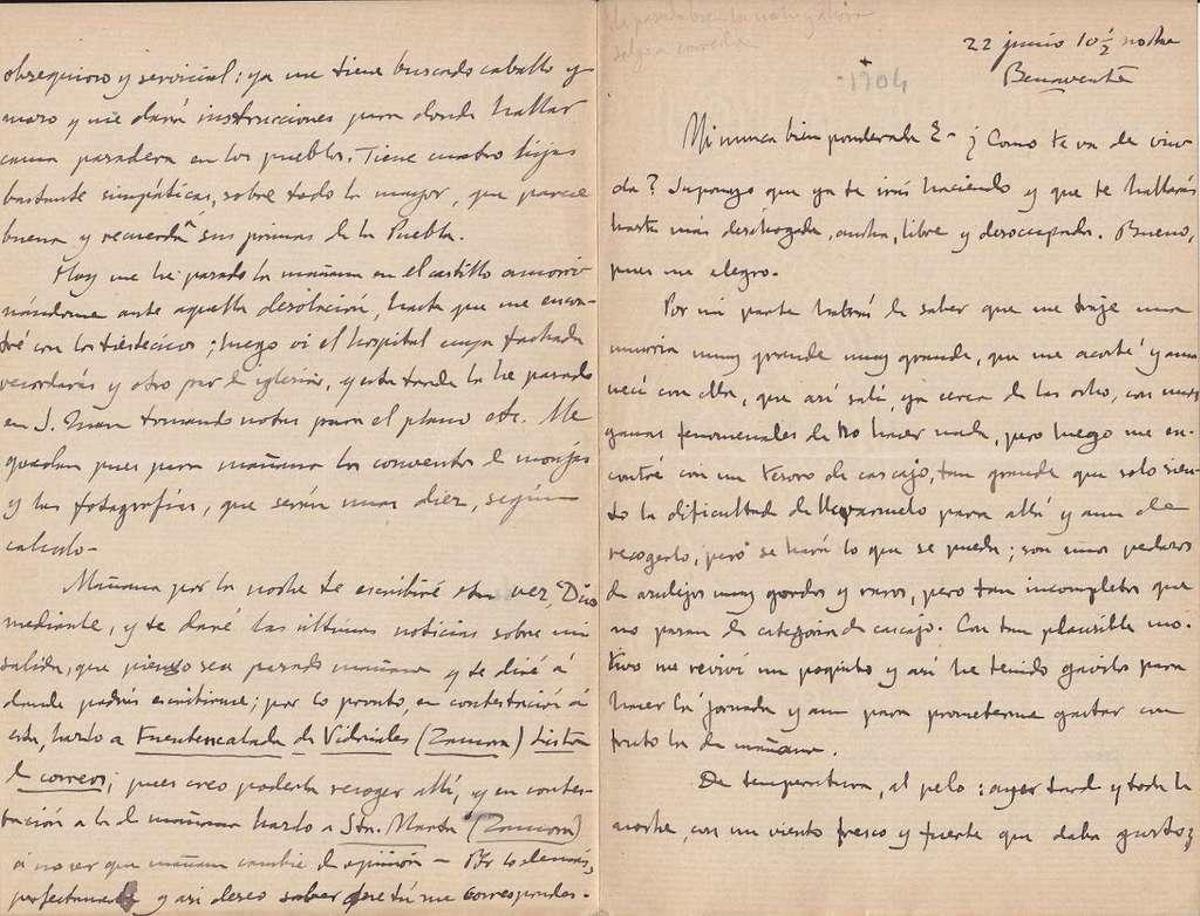 22 junio 10 ½ noche
Benavente
1904
Mi nunca bien ponderada E- ¿Como te va de viu-
da? Supongo que ya te irás haciendo y que te hallarás
hasta más desahogada, ancha, libre y desocupada. Bueno,
pues me alegro.
Por mi parte habrás de saber que me traje una
murria muy grande muy grande, que me acosté y ama-
necí con ella, que así salí, ya cerca de las ocho, con unas
ganas fenomenales de no hacer nada, pero luego me en-
contré con un tesoro de cascajo, tan grande que solo sien-
to la dificultad de llevármelo para allá y aun de
recogerlo, pero se hará lo que se pueda; son unos pedazos
de azulejos muy gordos y raros, pero tan incompletos que
no pasan de categoría de cascajo. Con tan plausible mo-
tivo me reviví un poquito y así he tenido gavilo para
hacer la jornada y aun para prometerme gastar con
fruto la de mañana.
De temperatura, al pelo: ayer tarde y toda la
noche, con un viento fresco y fuerte que daba gusto;
obsequioso y servicial: ya me tiene buscado caballo y
mozo y me dará instrucciones para donde hallar
cama pasadera en los pueblos. Tiene cuatro hijas
bastante simpáticas, sobre todo la mayor, que parece
buena y recuerda á sus primas de la Puebla.
Hoy me he pasado la mañana en el castillo amorri-
nándome ante aquella desolación, hasta que me encon-
tré con los tiestecicos; luego vi el hospital cuya fachada
recordarás y otro par de iglesias, y esta tarde la he pasado
en S. Juan tomando notas para el plano etc. Me
quedan pues para mañana los conventos de monjas
y las fotografías, que serán unas diez, según
calculo-
Mañana por la noche te escribiré otra vez, Dios
mediante, y te daré las últimas noticias sobre mi
salida, que pienso sea pasado mañana y te diré á
donde podrás escribirme; por lo pronto, en contestación á
esta, hazlo a Fuentencalada de Vidriales (Zamora) Lista
de correos; pues creo poderla recoger allí, y en contes-
tación a la de mañana hazlo a Sta. Marta (Zamora)
á no ser que mañana cambie de opinión – Por lo demás,
perfectamente y asi deseo saber que tú me correspondes.-